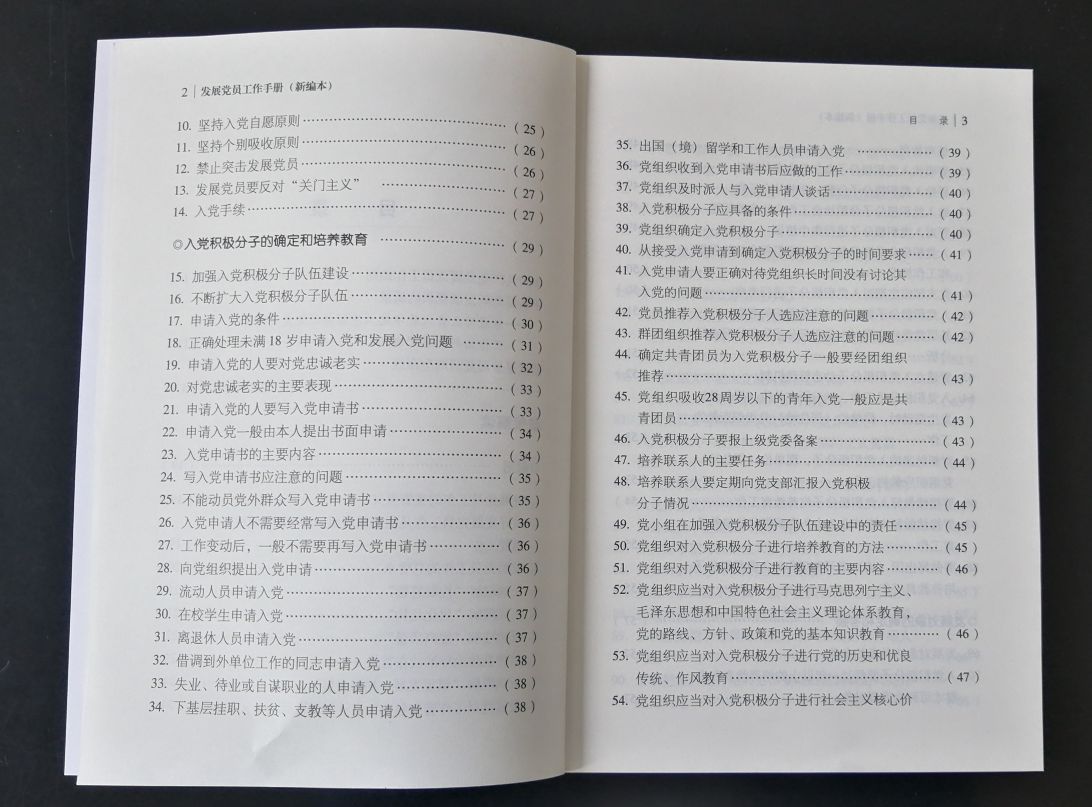 2 | 发展党员工作手册（新编本）
10. 坚持入党自愿原则……（25）
11. 坚持个别吸收原则……（26）
12. 禁止突击发展党员……（26）
13. 发展党员要反对“关门主义”……（27）
14. 入党手续……（27）
◎入党积极分子的确定和培养教育……（29）
15. 加强入党积极分子队伍建设……（29）
16. 不断扩大入党积极分子队伍……（29）
17. 申请入党的条件……（30）
18. 正确处理未满 18 岁申请入党和发展入党问题……（31）
19. 申请入党的人要对党忠诚老实……（32）
20. 对党忠诚老实的主要表现……（33）
21. 申请入党的人要写入党申请书……（33）
22. 申请入党一般由本人提出书面申请……（34）
23. 入党申请书的主要内容……（34）
24. 写入党申请书应注意的问题……（35）
25. 不能动员党外群众写入党申请书……（35）
26. 入党申请人不需要经常写入党申请书……（36）
27. 工作变动后，一般不需要再写入党申请书……（36）
28. 向党组织提出入党申请……（36）
29. 流动人员申请入党……（37）
30. 在校学生申请入党……（37）
31. 离退休人员申请入党……（37）
32. 借调到外单位工作的同志申请入党……（38）
33. 失业、待业或自谋职业的人申请入党……（38）
34. 下基层挂职、扶贫、支教等人员申请入党……（38）
目　录 | 3
35. 出国（境）留学和工作人员申请入党……（39）
36. 党组织收到入党申请书后应做的工作……（39）
37. 党组织及时派人与入党申请人谈话……（40）
38. 入党积极分子应具备的条件……（40）
39. 党组织确定入党积极分子……（40）
40. 从接受入党申请到确定入党积极分子的时间要求……（41）
41. 入党申请人要正确对待党组织长时间没有讨论其
入党的问题……（41）
42. 党员推荐入党积极分子人选应注意的问题……（42）
43. 群团组织推荐入党积极分子人选应注意的问题……（42）
44. 确定共青团员为入党积极分子一般要经团组织
推荐……（43）
45. 党组织吸收28周岁以下的青年入党一般应是共
青团员……（43）
46. 入党积极分子要报上级党委备案……（43）
47. 培养联系人的主要任务……（44）
48. 培养联系人要定期向党支部汇报入党积极
分子情况……（44）
49. 党小组在加强入党积极分子队伍建设中的责任……（45）
50. 党组织对入党积极分子进行培养教育的方法……（45）
51. 党组织对入党积极分子进行教育的主要内容……（46）
52. 党组织应当对入党积极分子进行马克思列宁主义、
毛泽东思想和中国特色社会主义理论体系教育，
党的路线、方针、政策和党的基本知识教育……（46）
53. 党组织应当对入党积极分子进行党的历史和优良
传统、作风教育……（47）
54. 党组织应当对入党积极分子进行社会主义核心价